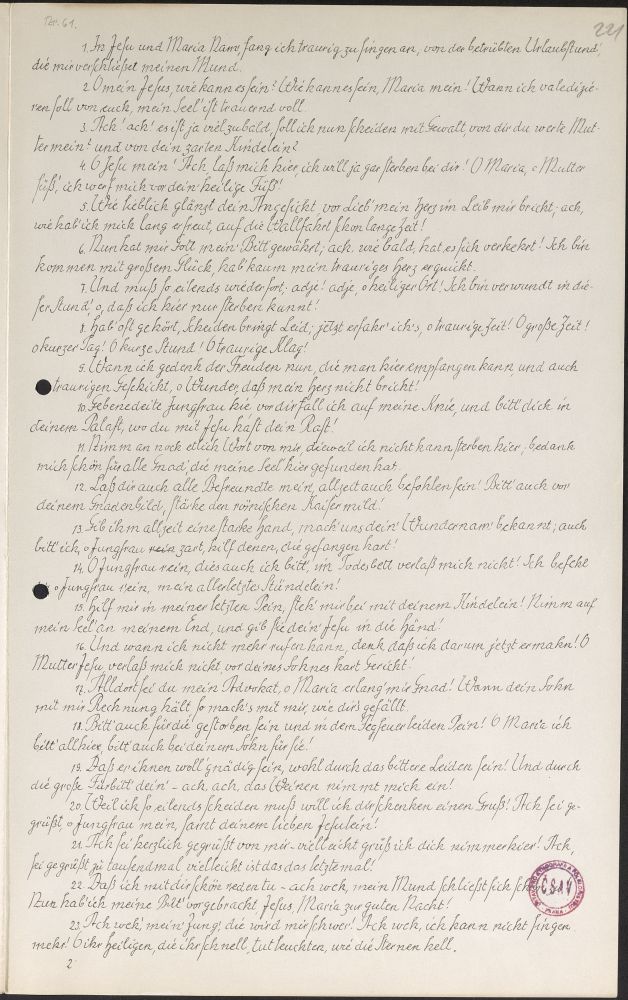 Nr. 61.
221
1. In Jesu und Maria Nam, fang ich traurig zu singen an, von der betrübten Urlaubstund,
die mir verschließet meinen Mund.
2. O mein Jesus, wie kann es sein! Wie kann es sein, Maria mein! Wann ich valedizie-
ren soll von euch, mein Seel' ist trauernd voll.
3. Ach! ach! es ist ja viel zu bald, soll ich nun scheiden mit Gewalt, von dir du werte Mut-
ter mein? und von dein zarten Kindelein?
4. O Jesu mein! Ach, laß mich hier, ich will ja gar sterben bei dir! O Maria, o Mutter
süß', ich werf mich vor dein heilige Füß'!
5. Wie lieblich glänzt dein Angesicht vor Lieb' mein Herz im Leib mir bricht; ach,
wie hab' ich mich lang erfreut, auf die Wallfahrt schon lange Zeit!
6. Nun hat mir Gott mein' Bitt gewährt; ach, wie bald, hat es sich verkehrt! Ich bin
kommen mit großem Glück, hab' kaum mein trauriges Herz erquickt.
7. Und muß so eilends wieder fort; adje! adje, o heiliger Ort! Ich bin verwundt in die-
ser Stund' o, daß ich hier nur sterben kunnt!
8. Hab' oft gehört, Scheiden bringt Leid; jetzt erfahr' ich's, o traurige Zeit! O große Zeit!
o kurzer Tag! O kurze Stund! O traurige Klag!
9. Wann ich gedenk der Freuden nun, die man hier empfangen kann, und auch
traurigen Geschicht, o Wunder, daß mein Herz nicht bricht!
10. Gebenedeite Jungfrau hie, vor dir fall ich auf meine Knie, und bitt dich in
deinem Palast, wo du mit Jesu hast dein Rast!
11. Nimm an noch etlich Wort von mir, dieweil ich nicht kann sterben hier; bedank
mich schön für alle Gnad', die meine Seel' hier gefunden hat.
12. Laß dir auch alle Befreundte mein, allzeit auch befohlen sein! Bitt' auch vor
deinem Gnadenbild, stärke den römischen Kaiser mild!
13. Gib ihm allzeit eine starke Hand, mach' uns dein' Wundernam' bekannt; auch
bitt' ich, o Jungfrau rein zart, hilf denen, die gefangen hart!
14. O Jungfrau rein, dies auch ich bitt', im Todesbett verlaß mich nicht! Ich befehl
o Jungfrau rein, mein allerletztes Stündelein!
15. Hilf mir in meiner letzten Pein, steh' mir bei mit deinem Kindelein! Nimm auf
mein Seel' an meinem End, und gib sie dein' Jesu in die Händ'!
16. Und wann ich nicht mehr rufen kann, denk, daß ich darum jetzt ermahn'! O
Mutter Jesu, verlaß mich nicht, vor deines Sohnes hart Gericht!
17. Alldort sei du mein Advokat, o Maria erlang' mir Gnad! Wann dein Sohn
mit mir Rechnung hält, so mach's mit mir, wie dir's gefällt.
18. Bitt' auch für die gestorben sein und in dem Fegfeuer leiden Pein! O Maria ich
bitt' allhier, bitt' auch bei deinem Sohn für sie!
19. Daß er ihnen woll' gnädig sein, wohl durch das bittere Leiden sein! Und durch
die große Fürbitt dein' - ach, ach, das Weinen nimmt mich ein!
20. Weil ich so eilends scheiden muß will ich dir schenken einen Gruß! Ach sei ge-
grüßt o Jungfrau mein, samt deinem lieben Jesulein!
21. Ach sei herzlich gegrüßt von mir - vielleicht grüß ich dich nimmer hier! Ach,
sei gegrüßt zu tausendmal vielleicht ist das das letztemal!
22. Daß ich mit dir schön reden tu - ach weh, mein Mund schließt sich
Nun hab' ich meine Bitt' vorgebracht Jesus, Maria zur guten Nacht!
23. Ach weh, mein' Zung', die wird mir schwer! Ach weh, ich kann nicht singen
mehr! O ihr Heiligen, die ihr schnell, tut leuchten, wie die Sternen hell.
2